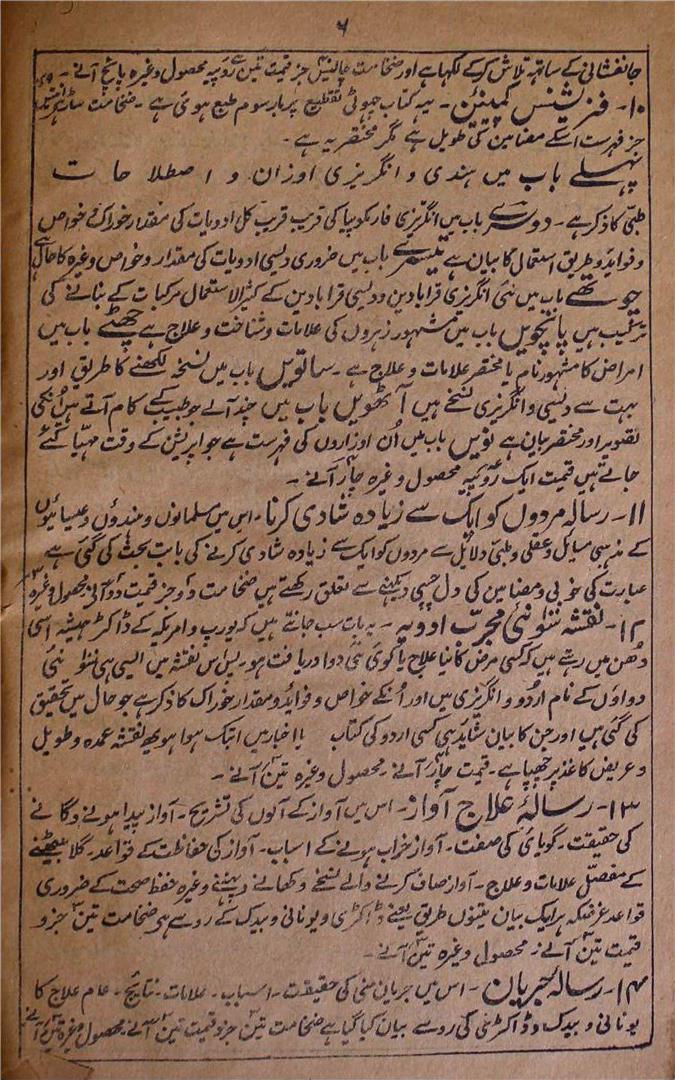 ۶
جانفشانی کے ساتھ تلاش کر کے لکہا ہے اور ضخامت چالیس جز قیمت تین روپیہ محصول وغیرہ پانچ آنے ۔
۱۰۔ فزیشنس کمپینین ۔ یہ کتاب چہوٹی تقطیع پر بار سوم طبع ہوئی ہے ۔ ضخامت
جز فہرست اسکے مضامین کی طویل ہے مگر مختصر یہ ہے ۔
پہلے باب میں ہندی و انگریزی اوزان و اصطلاحات
طبی کا ذکر ہے ۔ دوسرے باب میں انگریزی فارمکوپیا کی قریب قریب کل ادویات کی مقدار خوراک و خواص
و فوائد و طریق استعمال کا بیان ہے تیسرے باب میں ضروری دیسی ادویات کی مقدار و خواص وغیرہ کا حال ہے
چوتھے باب میں نئی انگریزی قرابادین و دیسی قرابادین کے کثیر الاستعمال مرکبات کے بنانے کی
ترکیب ہیں پانچویں باب میں مشہور زہروں کی علامات و شناخت و علاج ہے چھٹے باب میں
امراض کا مشہور نام یا مختصر علامات و علاج ہے ۔ ساتویں باب میں نسخہ لکھنے کا طریق اور
بہت سے دیسی و انگریزی نسخے ہیں آٹھویں باب میں چند آلے جو طبیب کے کام آتے ہیں اُنکی
تصویر اور مختصر بیان ہے نویں باب میں اُن اوزاروں کی فہرست ہے جو اپریشن کے وقت مہیا کئے
جاتے ہیں قیمت ایک روپیہ محصول وغیرہ چار آنے ۔
۱۱۔ رسالہ مردوں کو ایک سے زیادہ شادی کرنا ۔ اس میں مسلمانوں و ہندوں و عیسائیوں
کے مذہبی مسائل و عقلی و طبی دلائل سے مردوں کو ایک سے زیادہ شادی کرنے کی بابت بحث کی گئی ہے
عبارت کی خوبی و مضامین کی دل چسپی دیکہنے سے تعلق رکھتے ہیں ضخامت دو جز قیمت دو آنے محصول وغیرہ
۱۲۔ نقشہ ننٹو نئی مجرب ادویہ ۔ یہ بات سب جانتے ہیں کہ یورپ و امریکہ کے ڈاکٹر ہمیشہ اسی
دُھن میں رہتے ہیں کہ کسی مرض کا نیا علاج یا کوئی نئی دوا دریافت ہو ۔ پس اس نقشہ میں ایسی ہی ننٹو نئی
دواؤں کے نام اردو و انگریزی میں اور اُنکے خواص و فوائد و مقدار خوراک کا ذکر ہے جو حال میں تحقیق
کی گئی ہیں اور جن کا بیان شاید ہی کسی اردو کی کتاب یا اخبار میں ابتک ہوا ہو یہ نقشہ عمدہ و طویل
و عریض کاغذ پر چھپا ہے ۔ قیمت چار آنے ۔ محصول وغیرہ تین آنے ۔
۱۳۔ رسالہ علاج آواز ۔ اس میں آواز کے آلوں کی تشریح ۔ آواز پیدا ہونے و گانے
کی حقیقت ۔ گویائی کی صفت ۔ آواز خراب ہونے کے اسباب ۔ آواز کی حفاظت کے قواعد ۔ گلا بیٹھنے
کے مفصل علامات و علاج ۔ آواز صاف کرنے والے نسخے و کھانے و پینے وغیرہ حفظ صحت کے ضروری
قواعد غرضیکہ ہر ایک بیان تینوں طریق یعنے ڈاکٹری و یونانی و بیدک کے رو سے ہی ضخامت تین جزو
قیمت تین آنے ۔ محصول وغیرہ تین آنے ۔
۱۴۔ رسالہ جریان ۔ اس میں جریان منی کی حقیقت ۔ اسباب ۔ علامات ۔ نتایج ۔ عام علاج کا
یونانی و بیدک و ڈاکٹری کی رو سے بیان کیا گیا ہے ضخامت تین جزو قیمت تین آنے محصول وغیرہ تین آنے